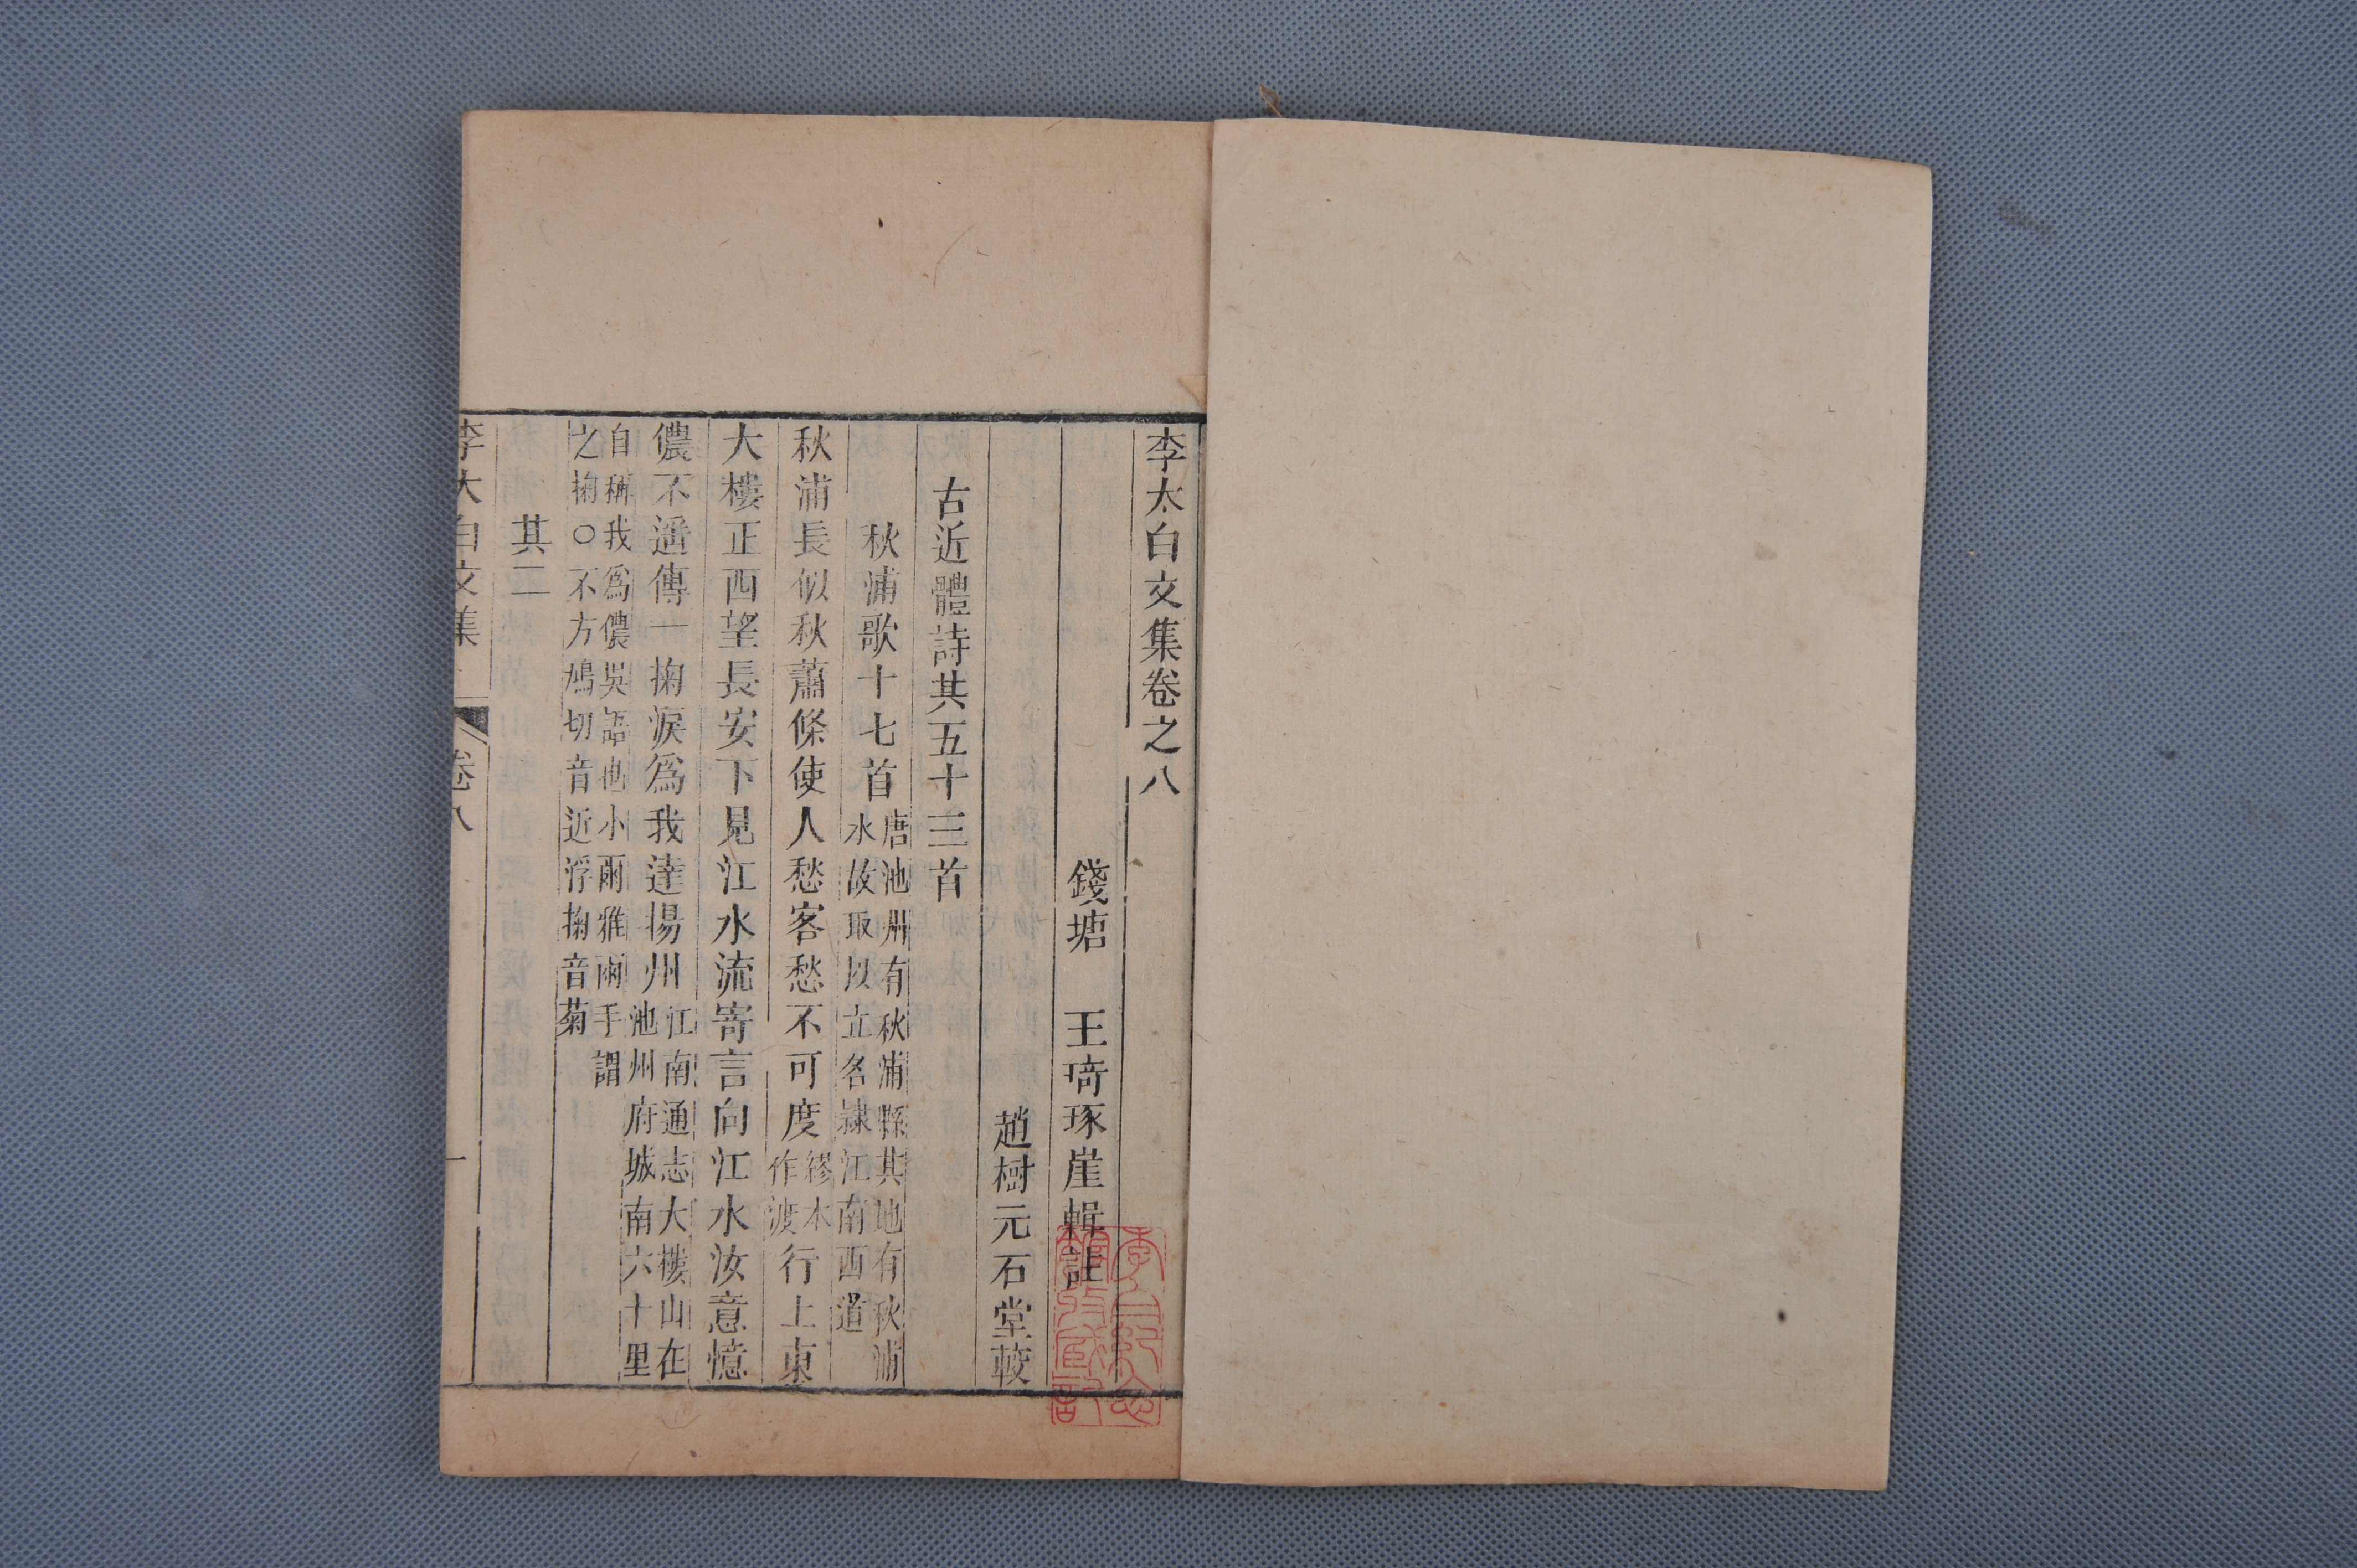 李太白文集卷之八
錢塘 王琦琢崖輯註
趙樹元石堂較
古近體詩共五十三首
秋浦歌十七首
唐池州有秋浦縣其地有秋浦
水故取以立名隷江南西道
秋浦長似秋蕭條使人愁客愁不可度
繆本
作渡
行上東
大樓正西望長安下見江水流寄言向江水汝意憶
儂不遥傳一掬淚爲我達揚州
江南通志大樓山在
池州府城南六十里
自稱我爲儂吳語也小爾雅兩手謂
之掬○不方鳩切音近浮掬音菊
其二
李太白文集
卷八
一